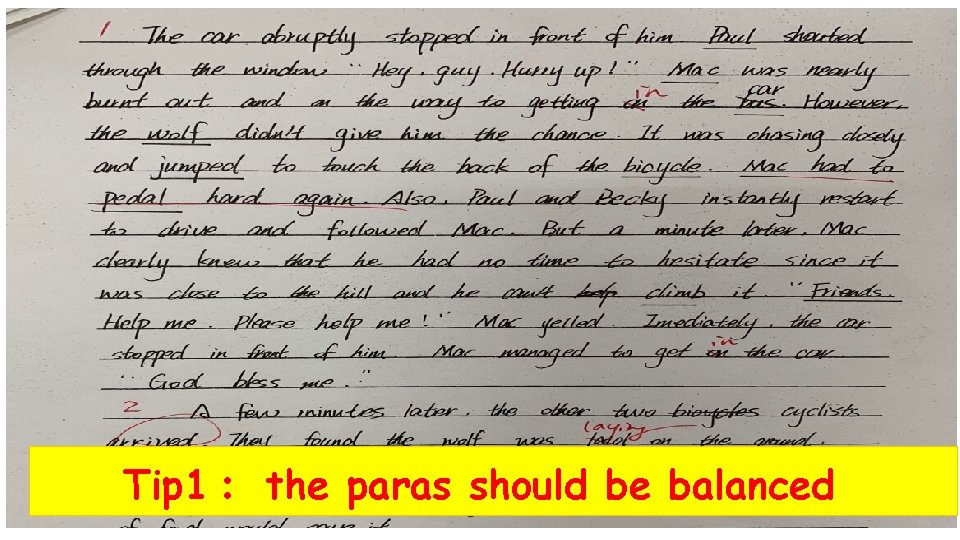 1 The car abruptly stopped in front of him. Paul shouted
through the window "Hey, guy. Hurry up!". Mac was nearly
burnt out and on the way to getting on in the bus car. However,
the wolf didn't give him the chance. It was chasing closely
and jumped to touch the back of the bicycle. Mac had to
pedal hard again. Also, Paul and Becky instantly restart
to drive and followed Mac. But a minute later, Mac
clearly knew that he had no time to hesitate since it
was close to the hill and he can't help climb it. "Friends.
Help me. Please help me!" Mac yelled. Imediately, the car
stopped in front of him. Mac managed to get on in the car
"God bless me."
2 A few minutes later, the other two bicycles cyclists
arrived. They found the wolf was laying on the ground.
Tip1： the paras should be balanced